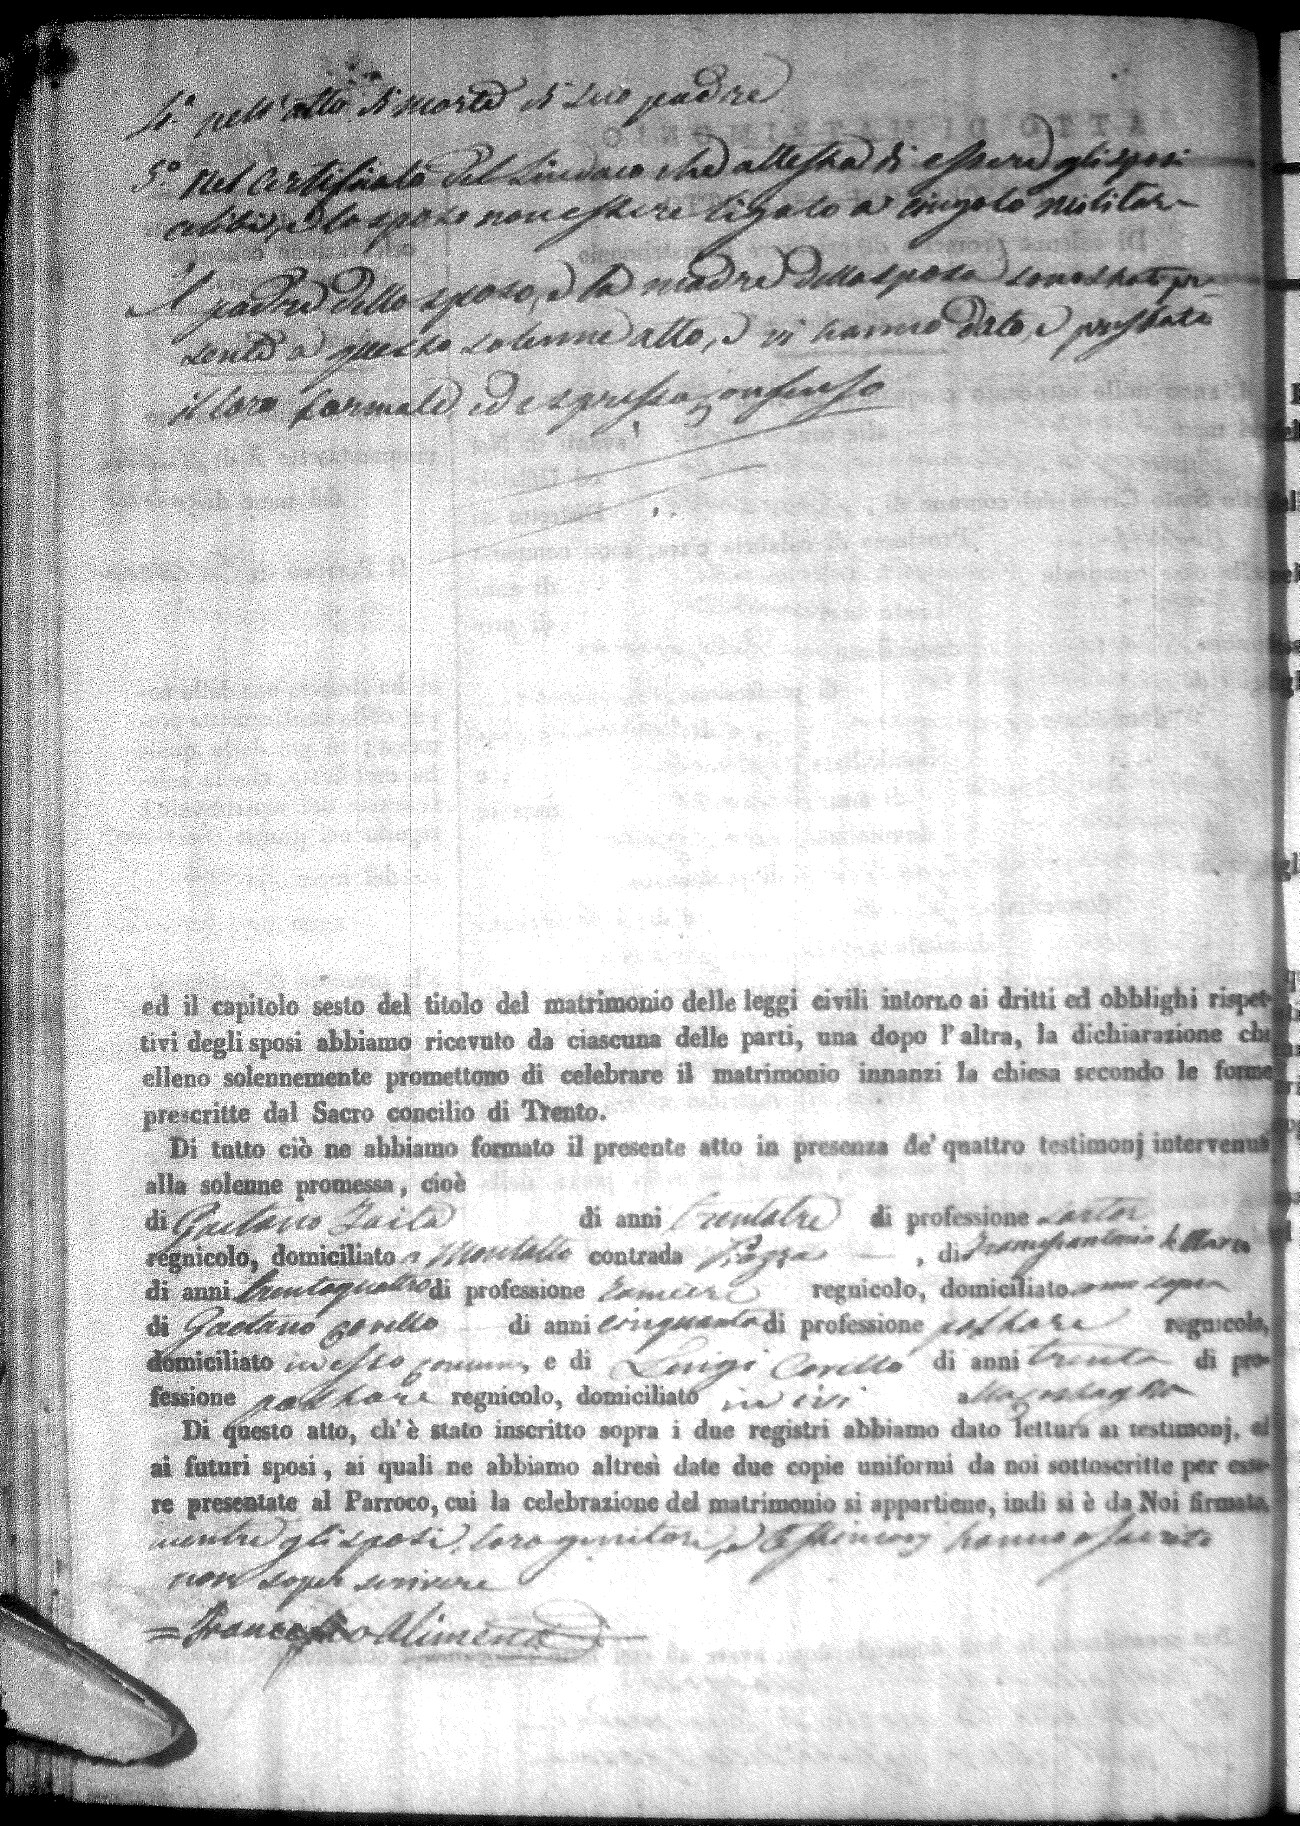 4.° nell'atto di morte di suo padre
5.° Nel certificato del Sindaco che attesta di essere gli sposi
celibi, e lo sposo non essere ligato a cingolo militare
Il padre dello sposo, e la madre della sposa sono stati pre-
senti a questo solenne atto, e vi hanno dato, e prestato
il loro formale, ed espresso consenso
ed il capitolo sesto del titolo del matrimonio delle leggi civili intorno ai dritti ed obblighi rispet-
tivi degli sposi abbiamo ricevuto da ciascuna delle parti, una dopo l'altra, la dichiarazione che
elleno solennemente promettono di celebrare il matrimonio innanzi la chiesa secondo le forme
prescritte dal Sacro concilio di Trento.
Di tutto ciò ne abbiamo formato il presente atto in presenza de' quattro testimonj intervenuti
alla solenne promessa, cioè
di Gaetano di anni trentatre di professione sartore
regnicolo, domiciliato a Montalto contrada Piazza, di Francescantonio de Marco
di anni trentaquattro di professione regnicolo, domiciliato come sopra
di Gaetano di anni cinquanta di professione pastore regnicolo,
domiciliato in esso comune, e di Luigi Covello di anni trenta di pro-
fessione pastore regnicolo, domiciliato in ivi
Di questo atto, ch'è stato inscritto sopra i due registri abbiamo dato lettura ai testimonj, ed
ai futuri sposi, ai quali ne abbiamo altresì date due copie uniformi da noi sottoscritte per esse-
re presentate al Parroco, cui la celebrazione del matrimonio si appartiene, indi si è da Noi firmato,
mentre gli sposi, loro genitori, e testimonj hanno asserito
non saper scrivere
= Francesco Alimena